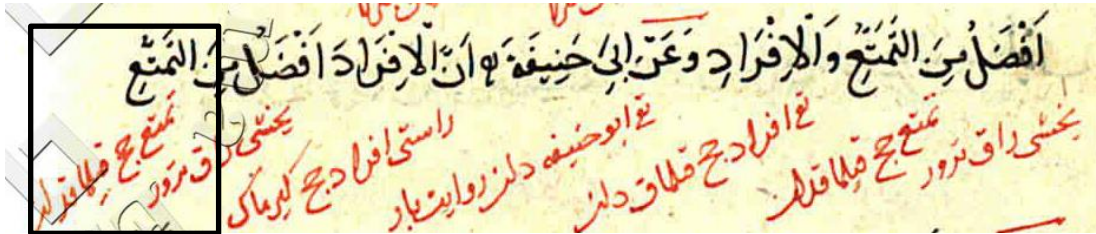 اَفْضَلُ مِنَ التَّمَتُّعِ وَالْاِفْرَادِ وَعَنْ اَبِى حَنِيفَةَ اَنَّ الْاِفْرَادَ اَفْضَلُ مِنَ التَّمَتُّعِ
يخشى راق تورور تمتع حج قيلماقدان تقى افراد حج قلماق دان تقى ابو حنيفه دان روايت بار راستى افراد حج يخشى راق تورور تمتع حج قيلماقدان